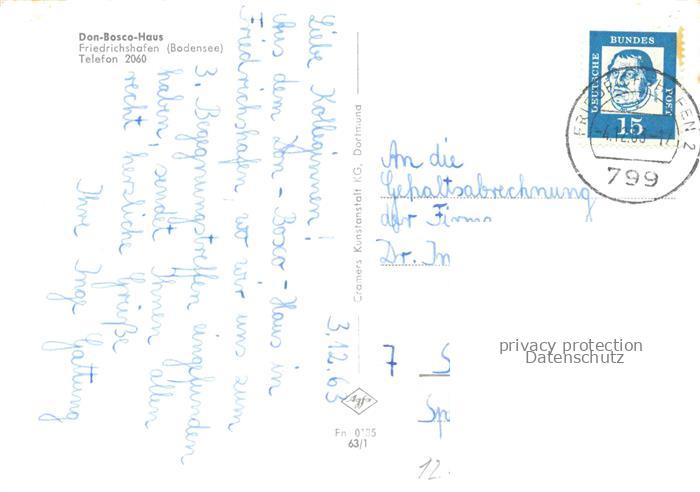 Don-Bosco-Haus
Friedrichshafen (Bodensee)
Telefon 2060
3.12.63
Liebe Kolleginnen!
Aus dem Don-Bosco-Haus in
Friedrichshafen, wo wir uns zum
3. Begegnungstreffen eingefunden
haben, sendet Ihnen allen
recht herzliche Grüße
Ihre Inge
Cramers Kunstanstalt KG, Dortmund
Fn 0185
63/1
DEUTSCHE
BUNDES
POST
15
799
An die
Gehaltsabrechnung
der Firma
Dr. In
7 S
Sp
12.
privacy protection
Datenschutz